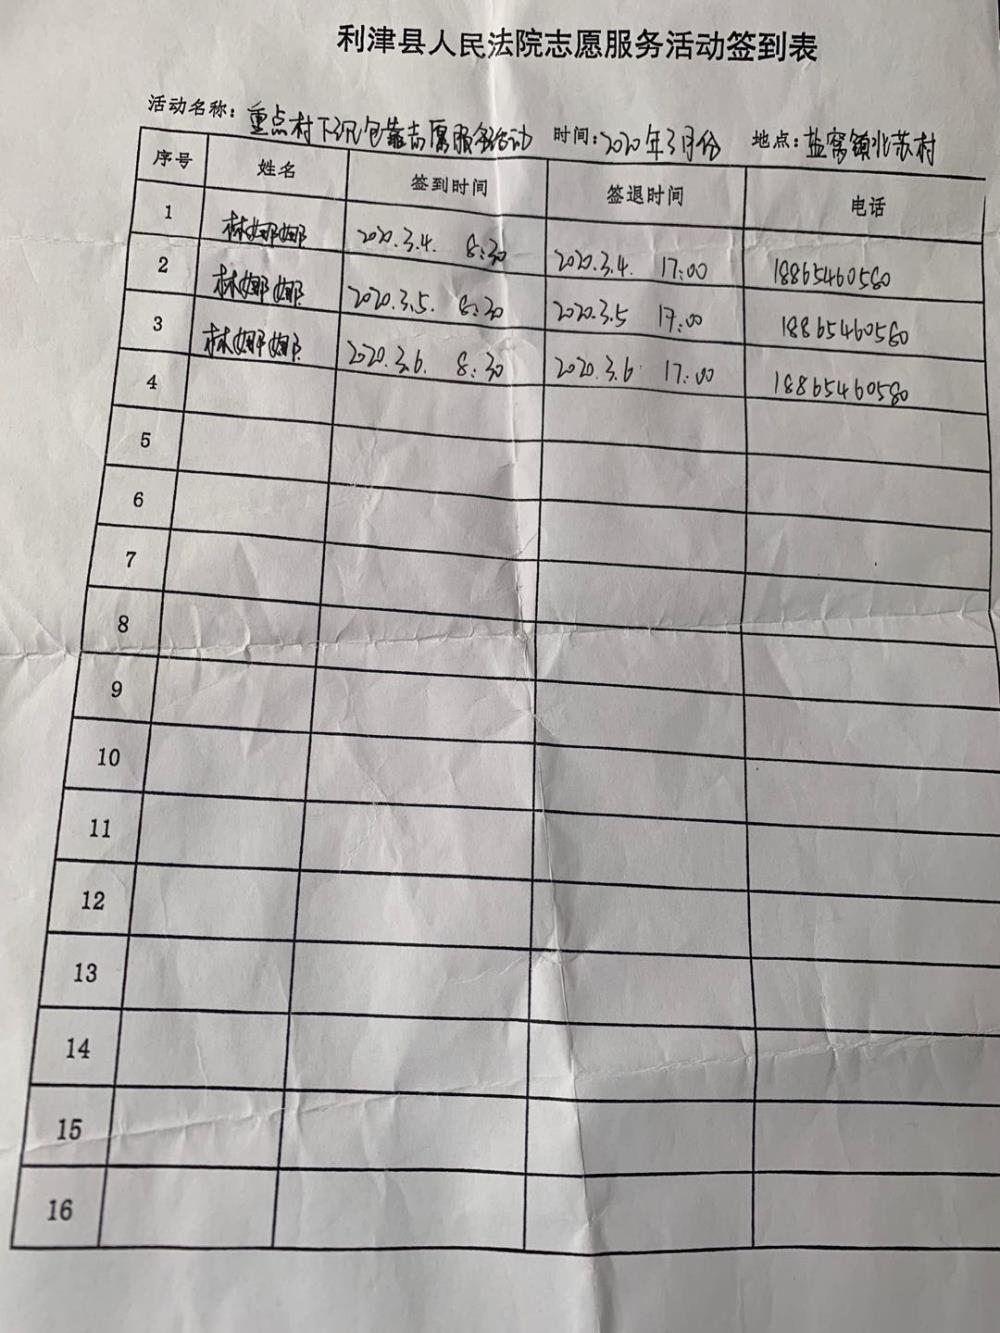 利津县人民法院志愿服务活动签到表
活动名称：重点村下沉包靠志愿服务活动 时间：2020年3月份 地点：盐窝镇北苏村
序号 姓名 签到时间 签退时间 电话
1 林娜娜 2020.3.4. 8:30 2020.3.4. 17:00 18865460580
2 林娜娜 2020.3.5. 8:30 2020.3.5 17:00 18865460580
3 林娜娜 2020.3.6. 8:30 2020.3.6 17:00 18865460580
4
5
6
7
8
9
10
11
12
13
14
15
16